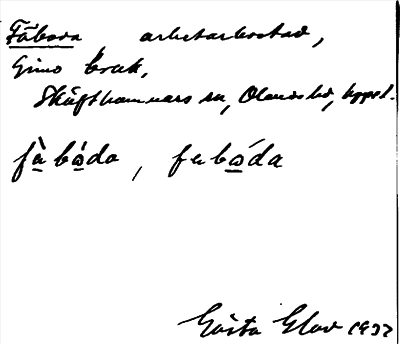 Fäboda arbetarbostad,
Gimo bruk,
Skäfthammars sn, Olands hd, Uppl.
fà̱bó̱da, fɛbó̱da
Gösta Elov 1937